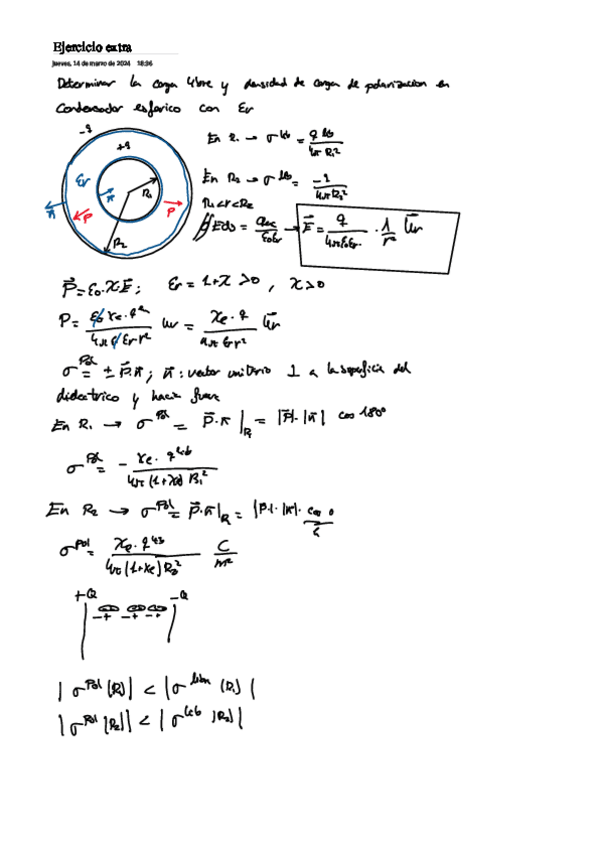 Ejercicio extra
jueves, 14 de marzo de 2024 18:36
Determinar la carga libre y densidad de carga de polarización en
Condensador esférico con Er
-q
+q
Er
R₁
n
n
P
P
R₂
En R₁ → σ^lib = q^lib / 4π R₁²
En R₂ → σ^lib = -q / 4π R₂²
R₁<r<R₂
∯ E ds = q_enc / ε₀εr → E⃗ = q / 4π ε₀ εr · 1/r² u⃗r
P⃗ = ε₀·χ E⃗ ; εr = 1+χ >0 , χ>0
P = ε₀ χe·q / 4π ε₀ εr r² ur = χe·q / 4π εr r² u⃗r
σ^Pol = ± P⃗·n⃗ ; n⃗ : vector unitario ⊥ a la superficie del
dieléctrico y hacia fuera
En R₁ → σ^Pol = P⃗·n⃗ |R₁ = |P⃗|·|n⃗| cos 180°
σ^Pol = - χe·q^lib / 4π (1+χe) R₁²
En R₂ → σ^Pol = P⃗·n⃗ |R₂ = |P|·|n⃗|· cos 0
σ^Pol = χe·q^lib / 4π (1+χe) R₂² C/m²
+Q -Q
-+ -+ -+
| σ^Pol (R₁) | < | σ^libre (R₁) |
| σ^Pol (R₂) | < | σ^lib (R₂) |